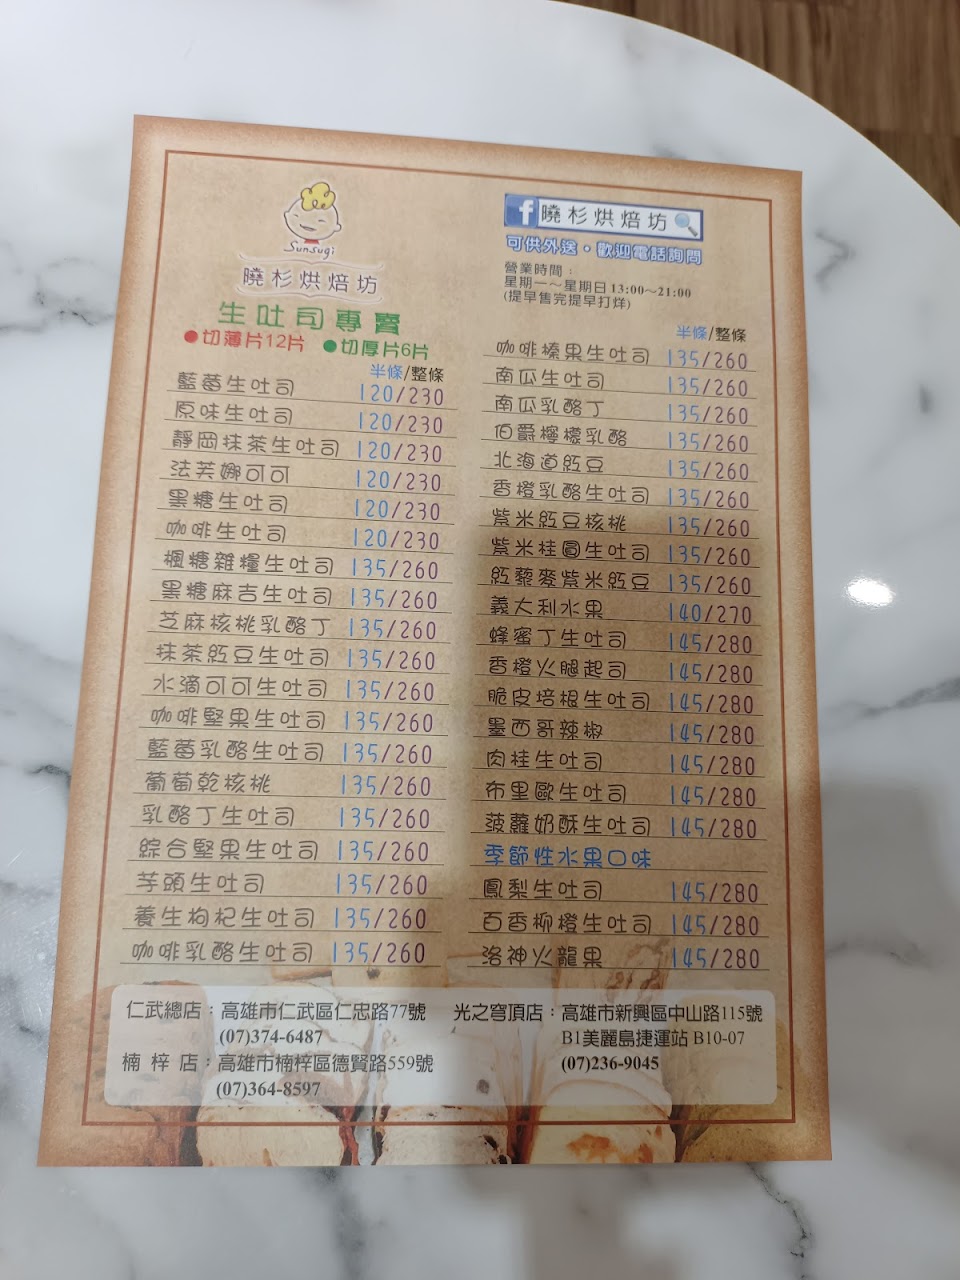 Sunsugi
曉杉烘焙坊
生吐司專賣
●切薄片12片 ●切厚片6片
半條/整條
藍莓生吐司 120/230
原味生吐司 120/230
靜岡抹茶生吐司 120/230
法芙娜可可 120/230
黑糖生吐司 120/230
咖啡生吐司 120/230
楓糖雜糧生吐司 135/260
黑糖麻吉生吐司 135/260
芝麻核桃乳酪丁 135/260
抹茶紅豆生吐司 135/260
水滴可可生吐司 135/260
咖啡堅果生吐司 135/260
藍莓乳酪生吐司 135/260
葡萄乾核桃 135/260
乳酪丁生吐司 135/260
綜合堅果生吐司 135/260
芋頭生吐司 135/260
養生枸杞生吐司 135/260
咖啡乳酪生吐司 135/260
f 曉杉烘焙坊
可供外送·歡迎電話詢問
營業時間：
星期一～星期日13:00～21:00
(提早售完提早打烊)
半條/整條
咖啡榛果生吐司 135/260
南瓜生吐司 135/260
南瓜乳酪丁 135/260
伯爵檸檬乳酪 135/260
北海道紅豆 135/260
香橙乳酪生吐司 135/260
紫米紅豆核桃 135/260
紫米桂圓生吐司 135/260
紅藜麥紫米紅豆 135/260
義大利水果 140/270
蜂蜜丁生吐司 145/280
香橙火腿起司 145/280
脆皮培根生吐司 145/280
墨西哥辣椒 145/280
肉桂生吐司 145/280
布里歐生吐司 145/280
菠蘿奶酥生吐司 145/280
季節性水果口味
鳳梨生吐司 145/280
百香柳橙生吐司 145/280
洛神火龍果 145/280
仁武總店：高雄市仁武區仁忠路77號
(07)374-6487
楠梓店：高雄市楠梓區德賢路559號
(07)364-8597
光之穹頂店：高雄市新興區中山路115號
B1美麗島捷運站 B10-07
(07)236-9045